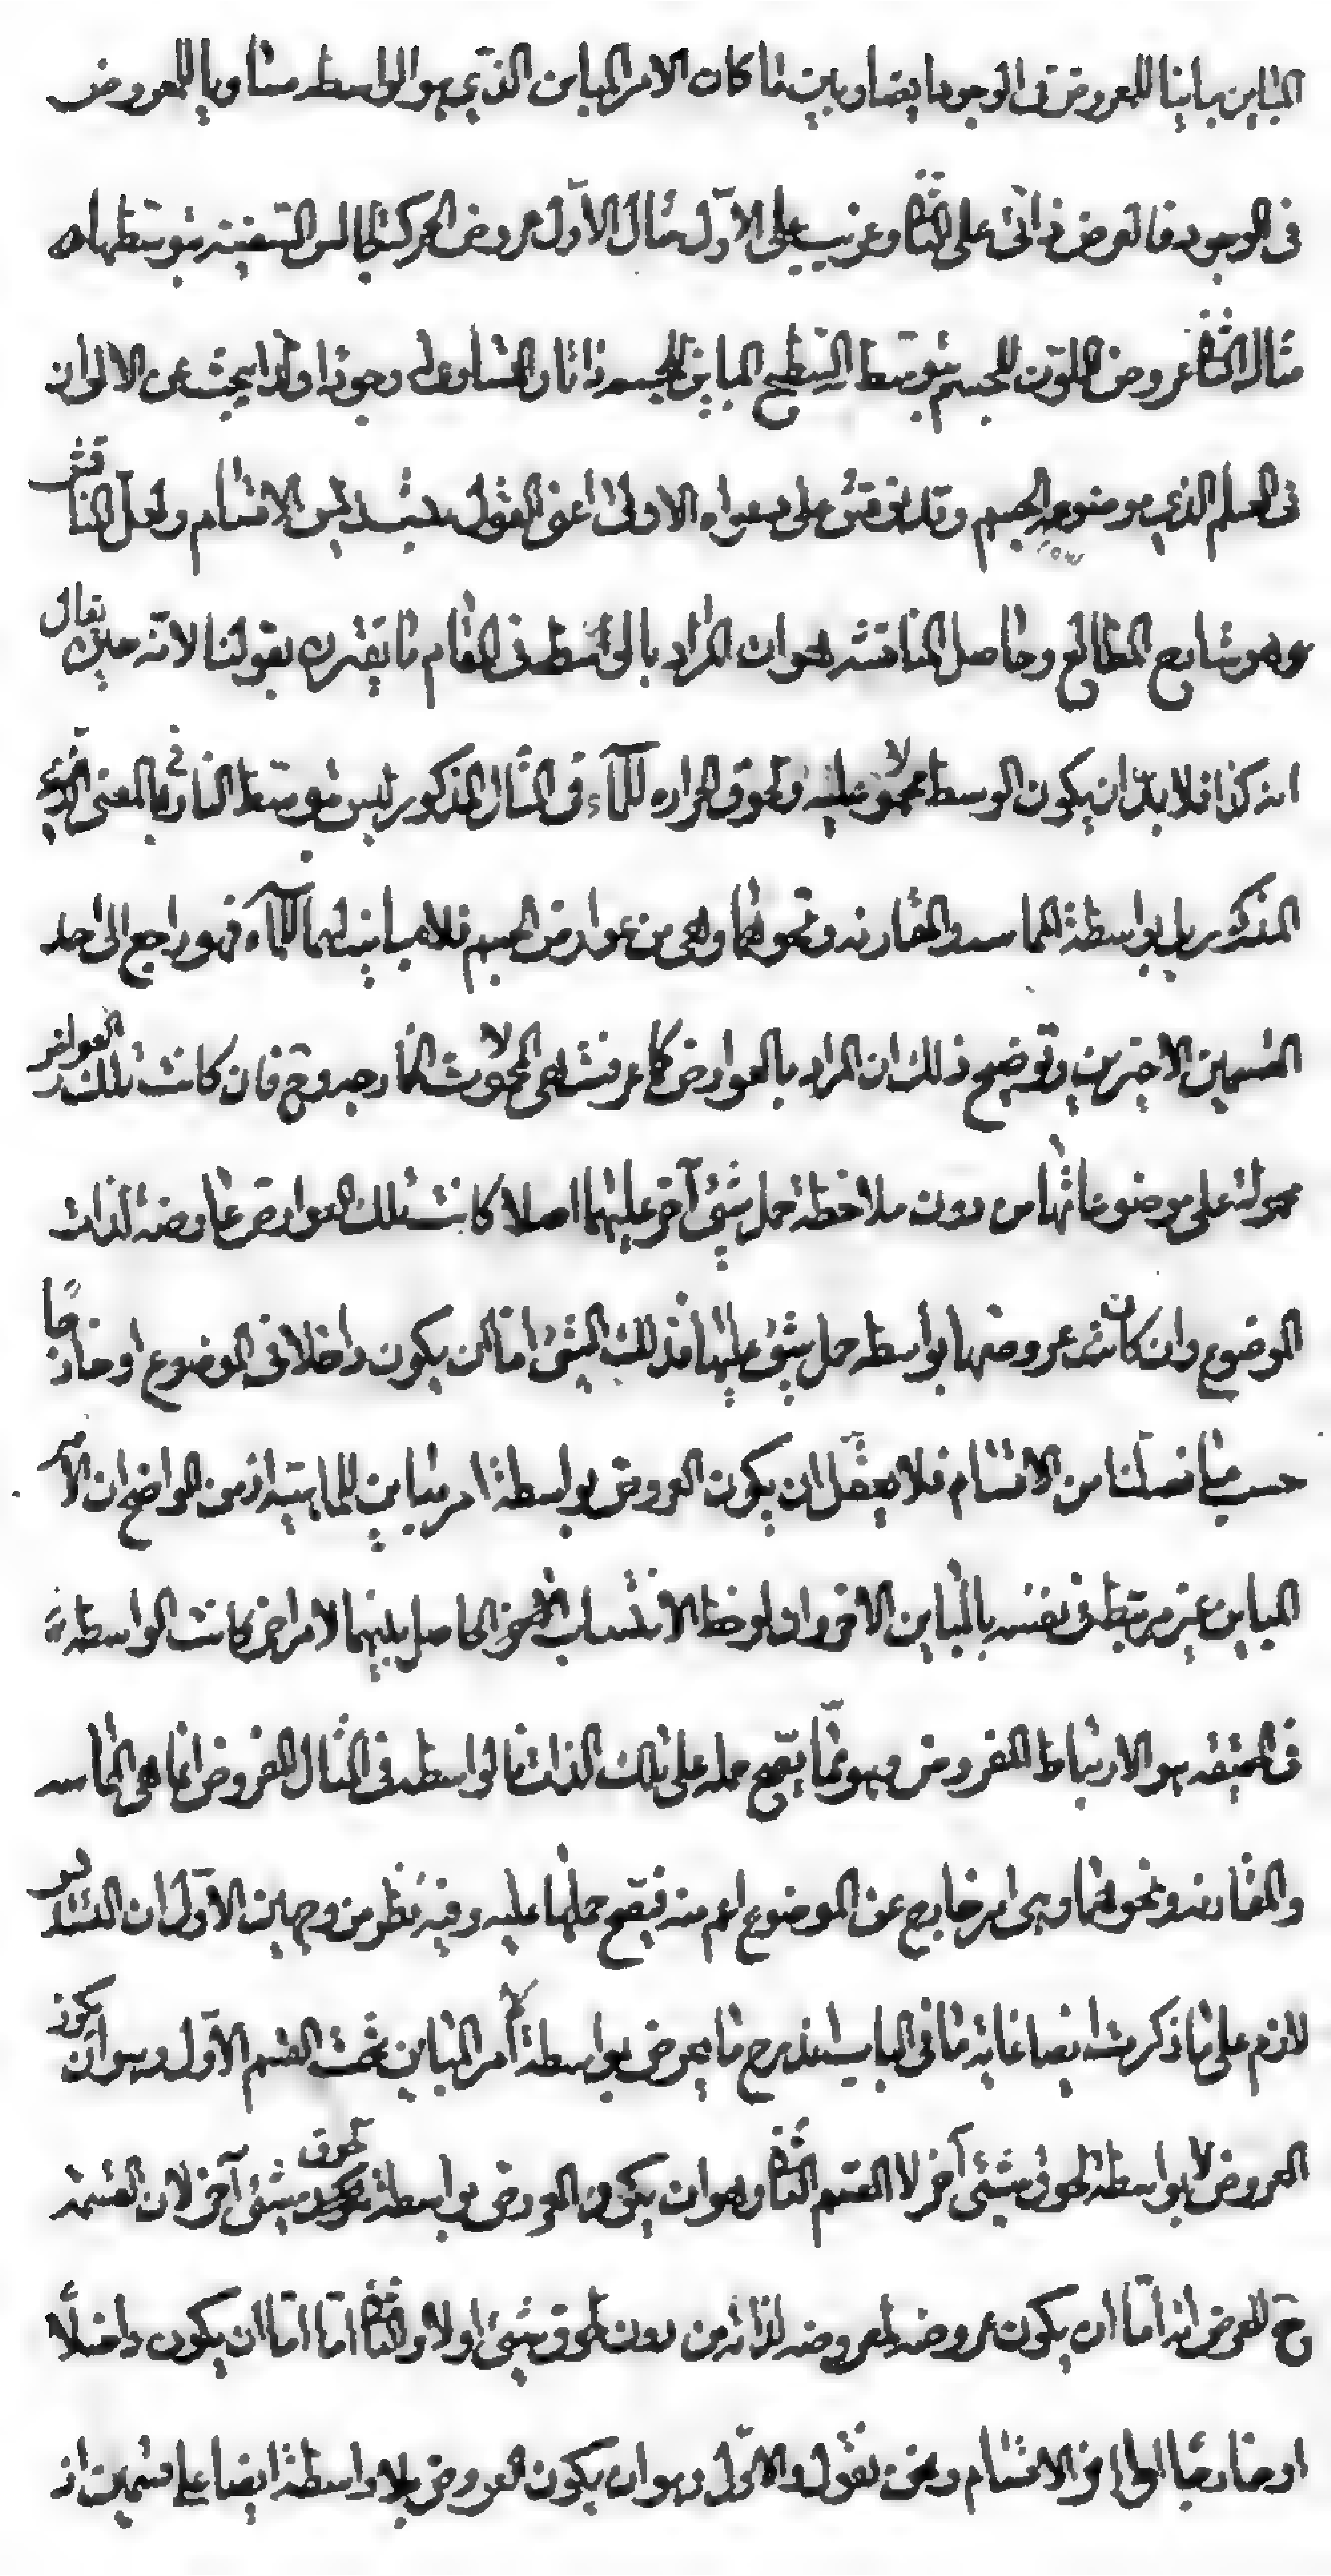 المباين مباينا للمعروض في الوجود ايضا وبين ما كان الامر المباين الذي هو الواسطه مساويا للمعروض
في الوجود فالعرض ذاتي على الثاني وغريب على الاول مثال الاول عروض الحركة لجالس السفينه بتوسطها
مثال الثاني عروض اللون للجسم بتوسط السطح المباين للجسم ذاتا والمساوي له وجودا ولذا يبحث عن الالوان
في العلم الذي موضوعه الجسم وقد نوقش على دعواه الاولى اعني القول بتسديس الاقسام ولعل المناقش
وهو شارح المطالع وحاصل المناقشه هو ان المراد بالواسطه في المقام ما يقترن بقولنا لانه حين يقال
انه كذا فلا بد ان يكون الوسط محمولا عليه ولحوق الحراره للماء في المثال المذكور ليس بتوسط النار بالمعنى
المذكور بل بواسطة المماسه والمقارنه ونحوهما وهي من عوارض الجسم فلا مباينة لهما للماء فهو راجع الى احد
القسمين الاخيرين وتوضيح ذلك ان المراد بالعوارض كما عرفت هي المحمولات الخارجيه وح فان كانت تلك العوارض
محمولة على موضوعاتها من دون ملاحظة حمل شيء آخر عليها اصلا كانت تلك العوارض عارضه لذات
الموضوع وان كانت عروضها بواسطه حمل شيء عليها فذلك الشيء اما ان يكون داخلا في الموضوع او خارجا
حسب ما فصلنا من الاقسام فلا يعقل ان يكون العروض بواسطة امر مباين للماهية اذ من الواضح ان الامر
المباين غير مرتبط في نفسه بالمباين الاخر وان لوحظ الانتساب الحاصل بينهما لامر اخر كانت الواسطه
في الحقيقه هو الارتباط المفروض وهو مما يصح حمله على تلك الذات فالواسطه في المثال المفروض انما هي المماسه
والمقارنه ونحوهما وهي امر خارج عن الموضوع اعم منه فيصح حملها عليه وفيه نظر من وجهين الاول ان التسديس
لازم على ما ذكرت ايضا غاية ما في الباب اندرج ما يعرض بواسطة امر المباين تحت القسم الاول وهو ان يكون
العروض لا بواسطة لحوق شيء آخر لا القسم الثاني وهو ان يكون العروض بواسطة لحوق شيء آخر لان القسمة
ح للعرض انه اما ان يكون عروضه لمعروضه لذاته من دون لحوق شيء او لا والثاني اما اما ان يكون داخلا
او خارجا الى اخر الاقسام ونحن نقول والاول وهو ان يكون العروض بلا واسطة ايضا على قسمين اذ